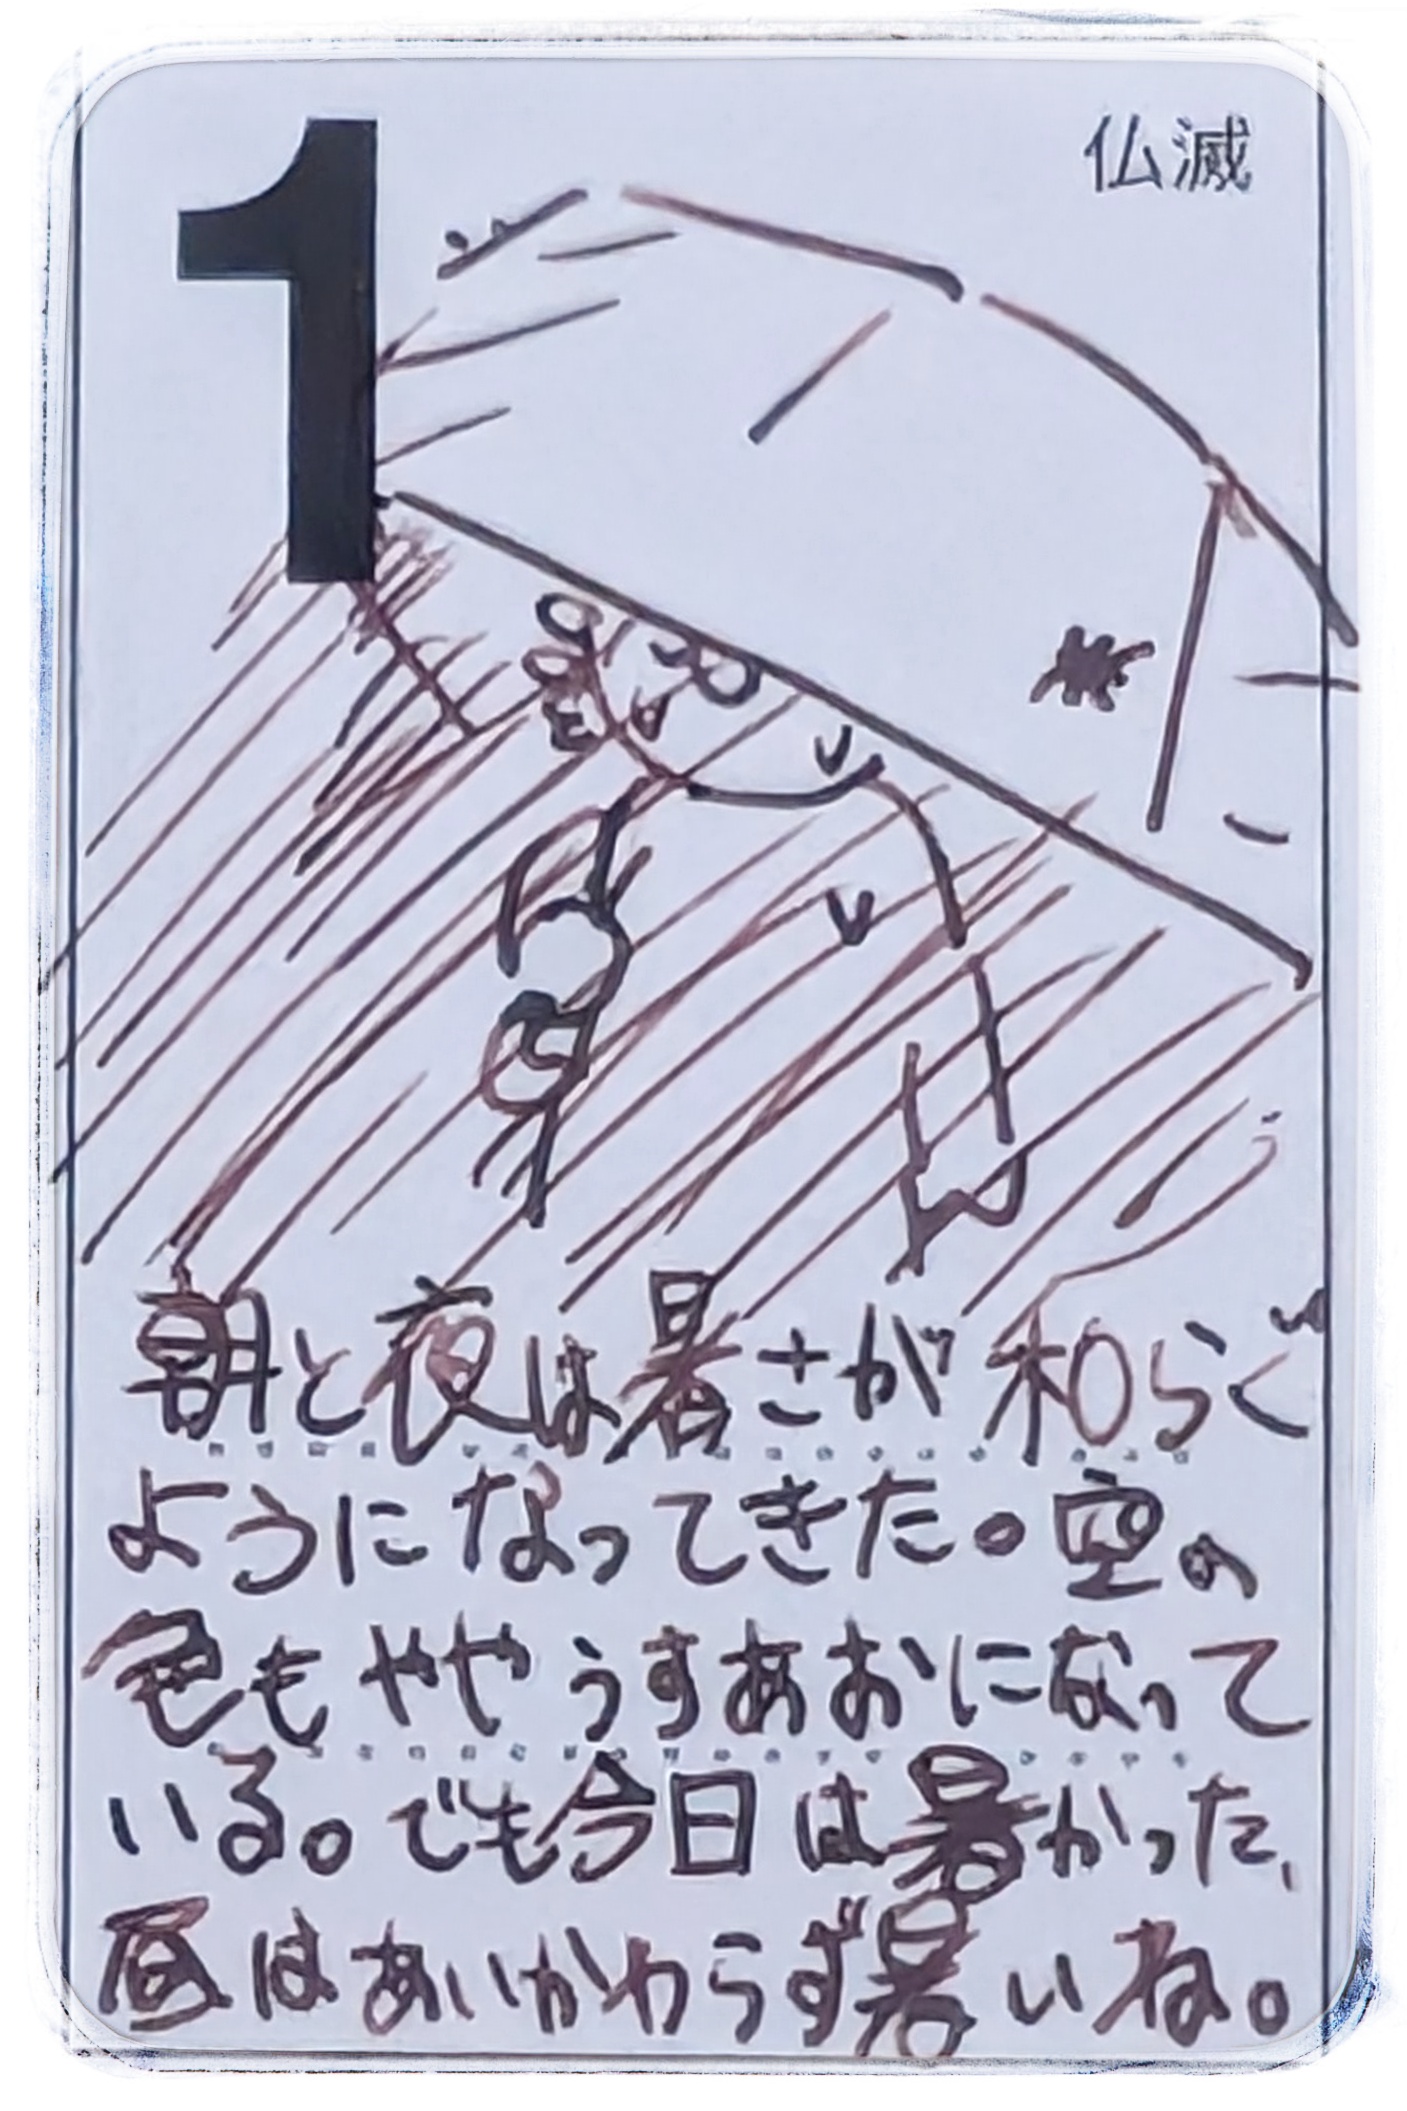 1
仏滅
朝と夜は暑さが和らぐ
ようになってきた。空の
色もややうすあおになって
いる。でも今日は暑かった、
昼はあいかわらず暑いね。